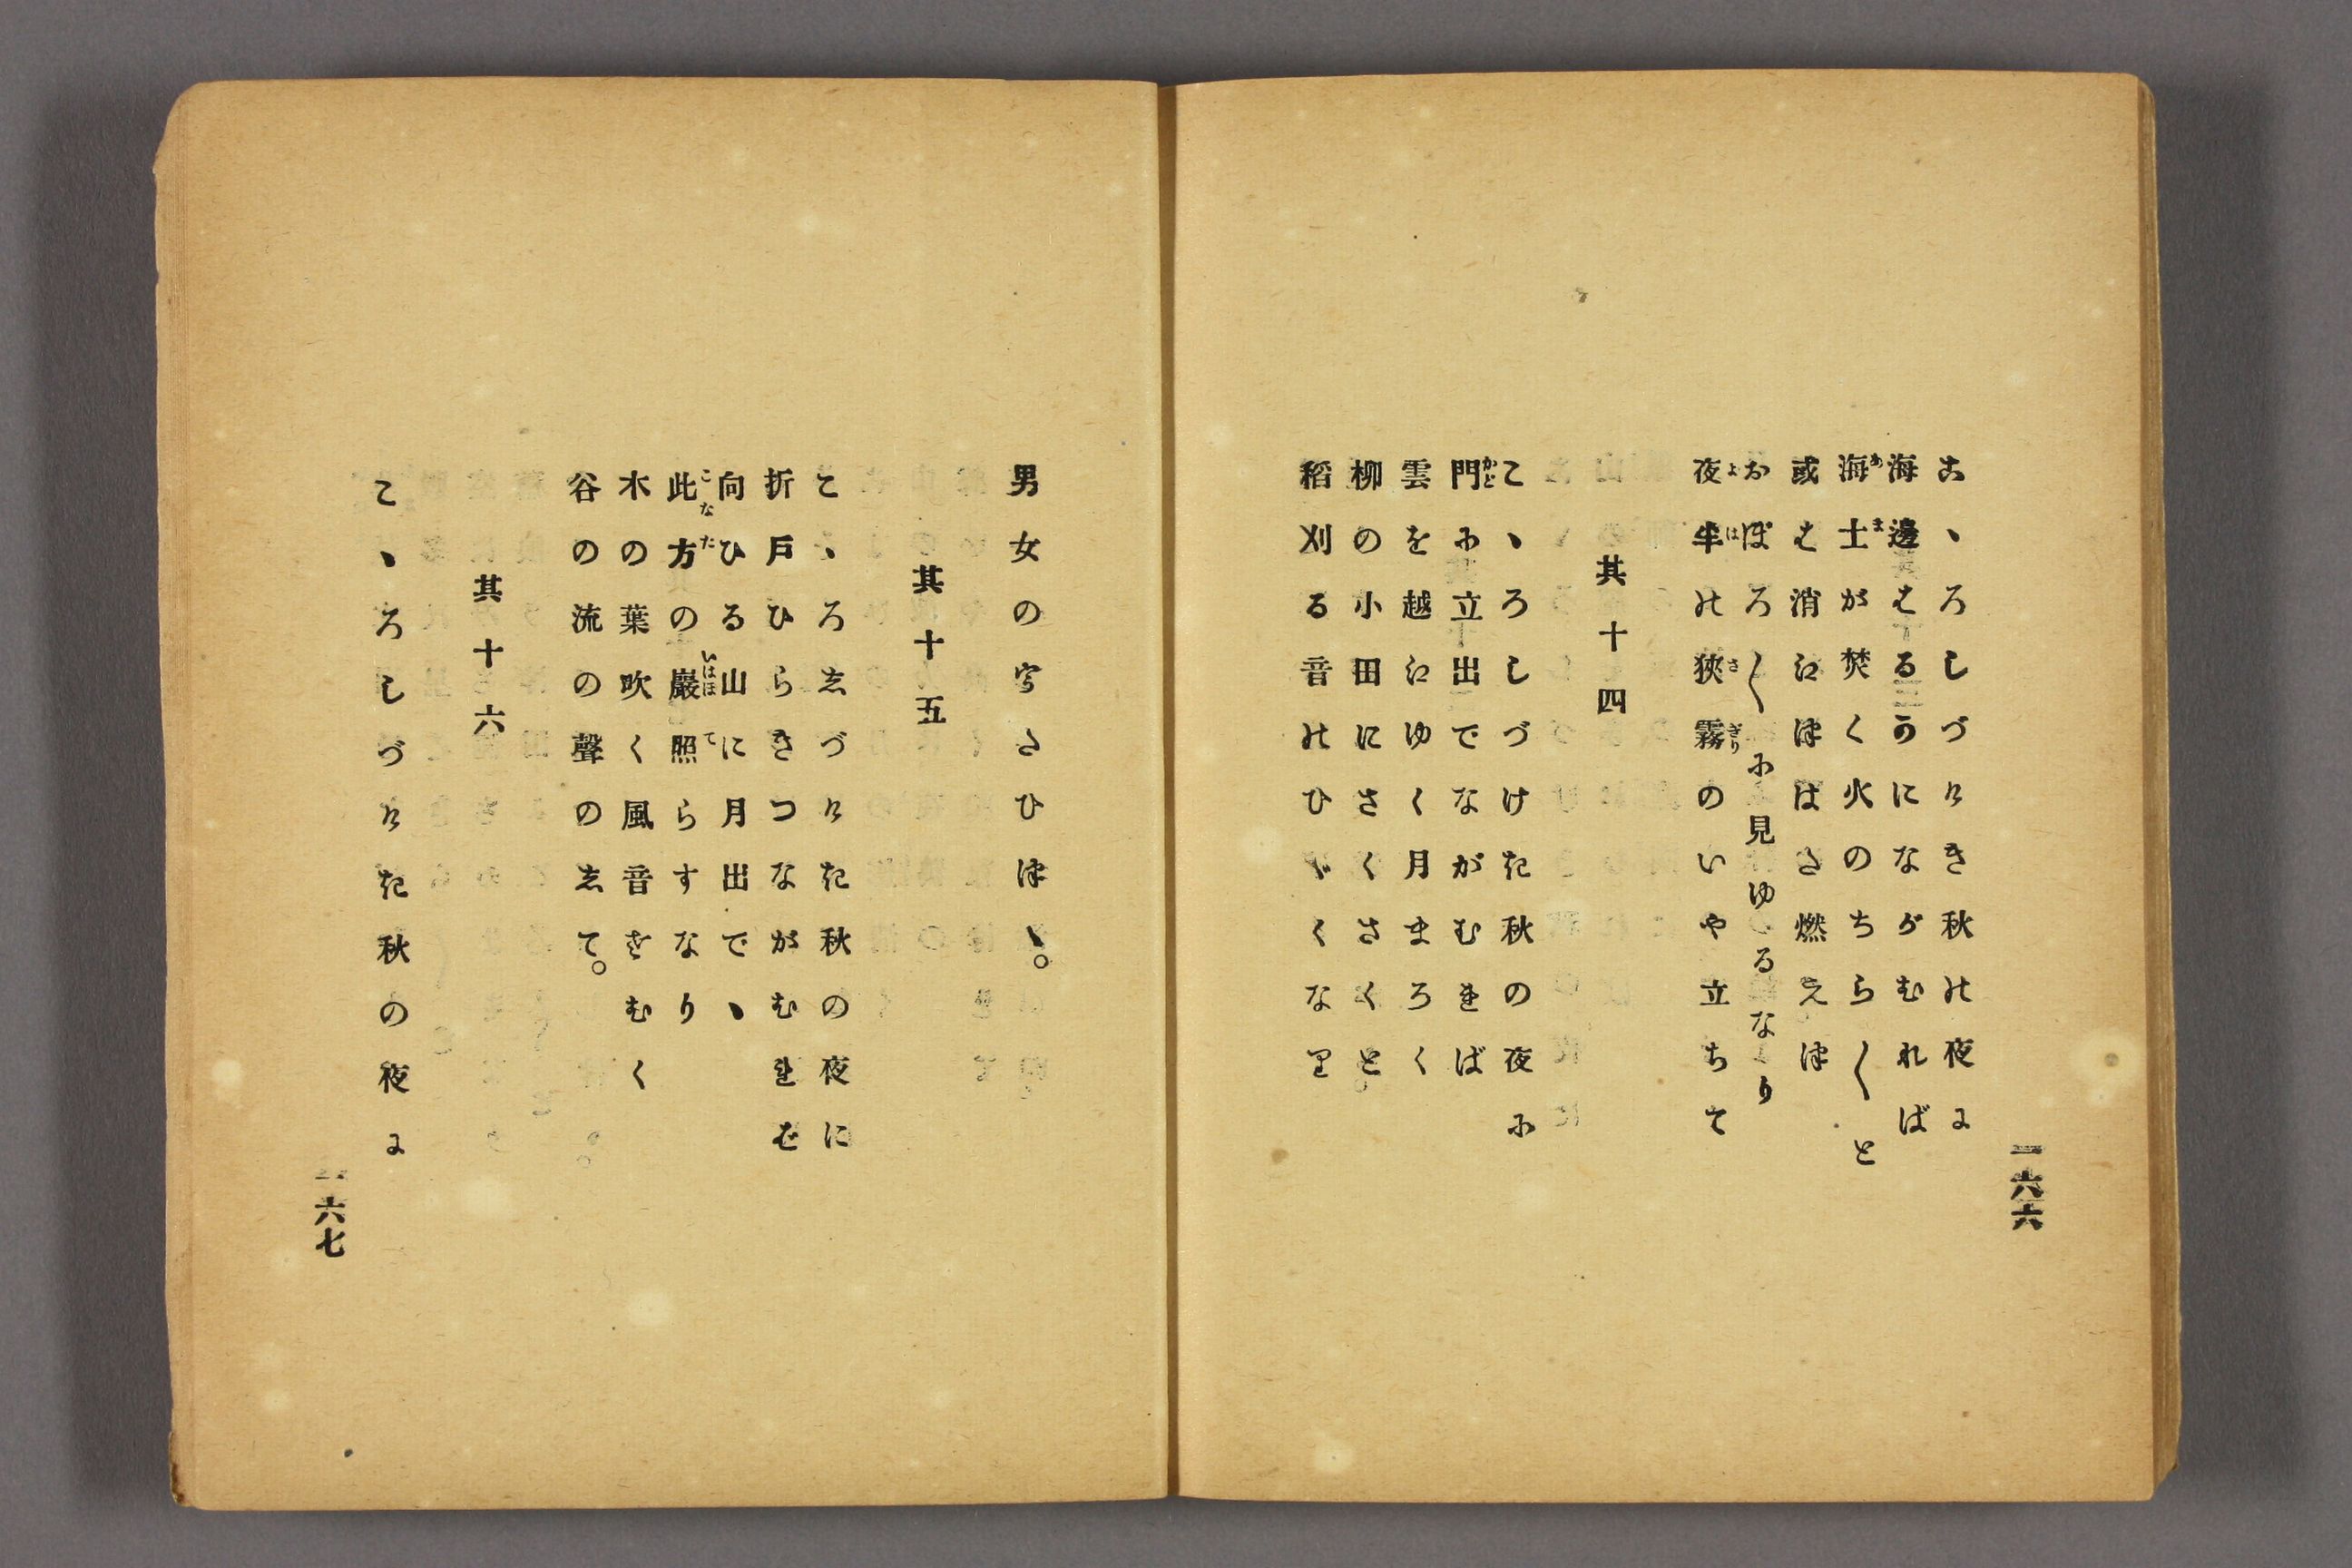 こゝろしづけき秋の夜に
海邊はるかにながむれば
海士が焚く火のちら〳〵と
或は消えつはた燃えつ
おぼろ〳〵に見ゆるなり
夜半の狹霧のいや立ちて
其十四
こゝろしづけき秋の夜に
門に立出でながむれば
雲を越えゆく月まろく
柳の小田にさくさくと
稻刈る音のひゞくなり
一六六
男女の寫さひつゝ。
其十五
こゝろしづけき秋の夜に
折戸ひらきつながむれば
向ひる山に月出でゝ
此方の巖照らすなり
木の葉吹く風音さむく
谷の流の聲のして。
其十六
こゝろしづけき秋の夜に
一六七